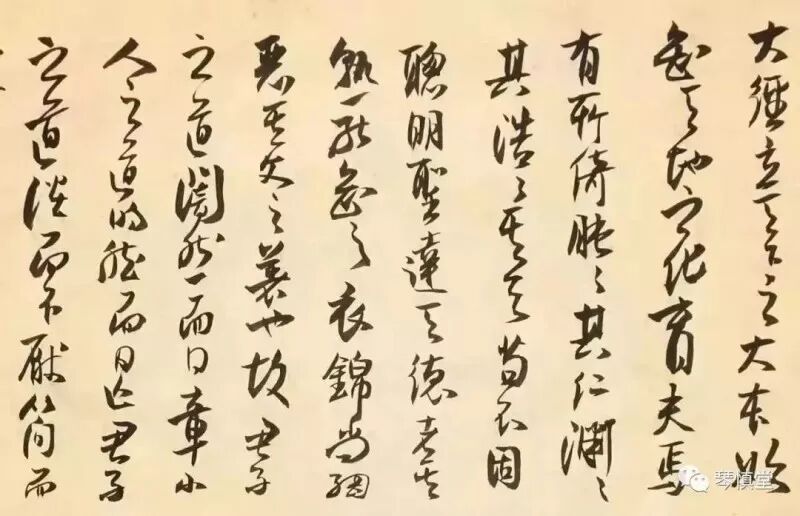 大經立天下之大本
知天地之化育夫焉
有所倚肫〻其仁淵〻
其浩〻其天苟不固
聰明聖達天德者其
孰能知之衣錦尚絅
惡其文之著也故君子
之道闇然而日章小
人之道的然而日亡君子
之道淡而不厭簡而
琴慎堂